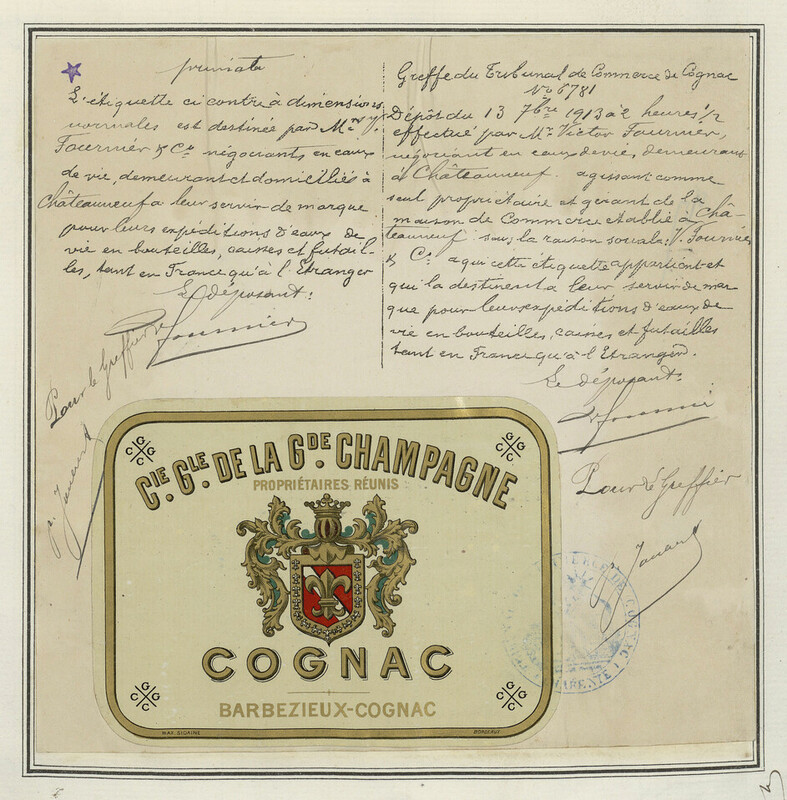 L'étiquette ci contre à dimensions
normales est destinée par Mrs V.
Fournier & Cie négociants en eaux
de vie, demeurant et domiciliés à
Châteauneuf a leur servir de marque
pour leurs expéditions d'eaux de
vie en bouteilles, caisses et futail-
les, tant en France qu'à l'Etranger
Le déposant:
V Fournier
Pour le Greffier
Greffe du Tribunal de Commerce de Cognac
No 6781
Dépôt du 13 7bre 1913 à 2 heures 1/2
effectué par Mr Victor Fournier,
négociant en eaux de vie, demeurant
à Châteauneuf agissant comme
seul propriétaire et gérant de la
maison de Commerce établie à Châ-
teauneuf sous la raison sociale: V. Fournier
& Cie a qui cette étiquette appartient et
qui la destinent a leur servir de mar
que pour leurs expéditions d'eaux de
vie en bouteilles, caisses et futailles
tant en France qu'à l'Etranger.
Le déposant:
V Fournier
Pour le Greffier
CIE. GLE. DE LA GDE. CHAMPAGNE
PROPRIÉTAIRES RÉUNIS
COGNAC
BARBEZIEUX-COGNAC
G G C C
G G C C
G G C C
G G C C
MAR. SICAINE
BORDEAUX